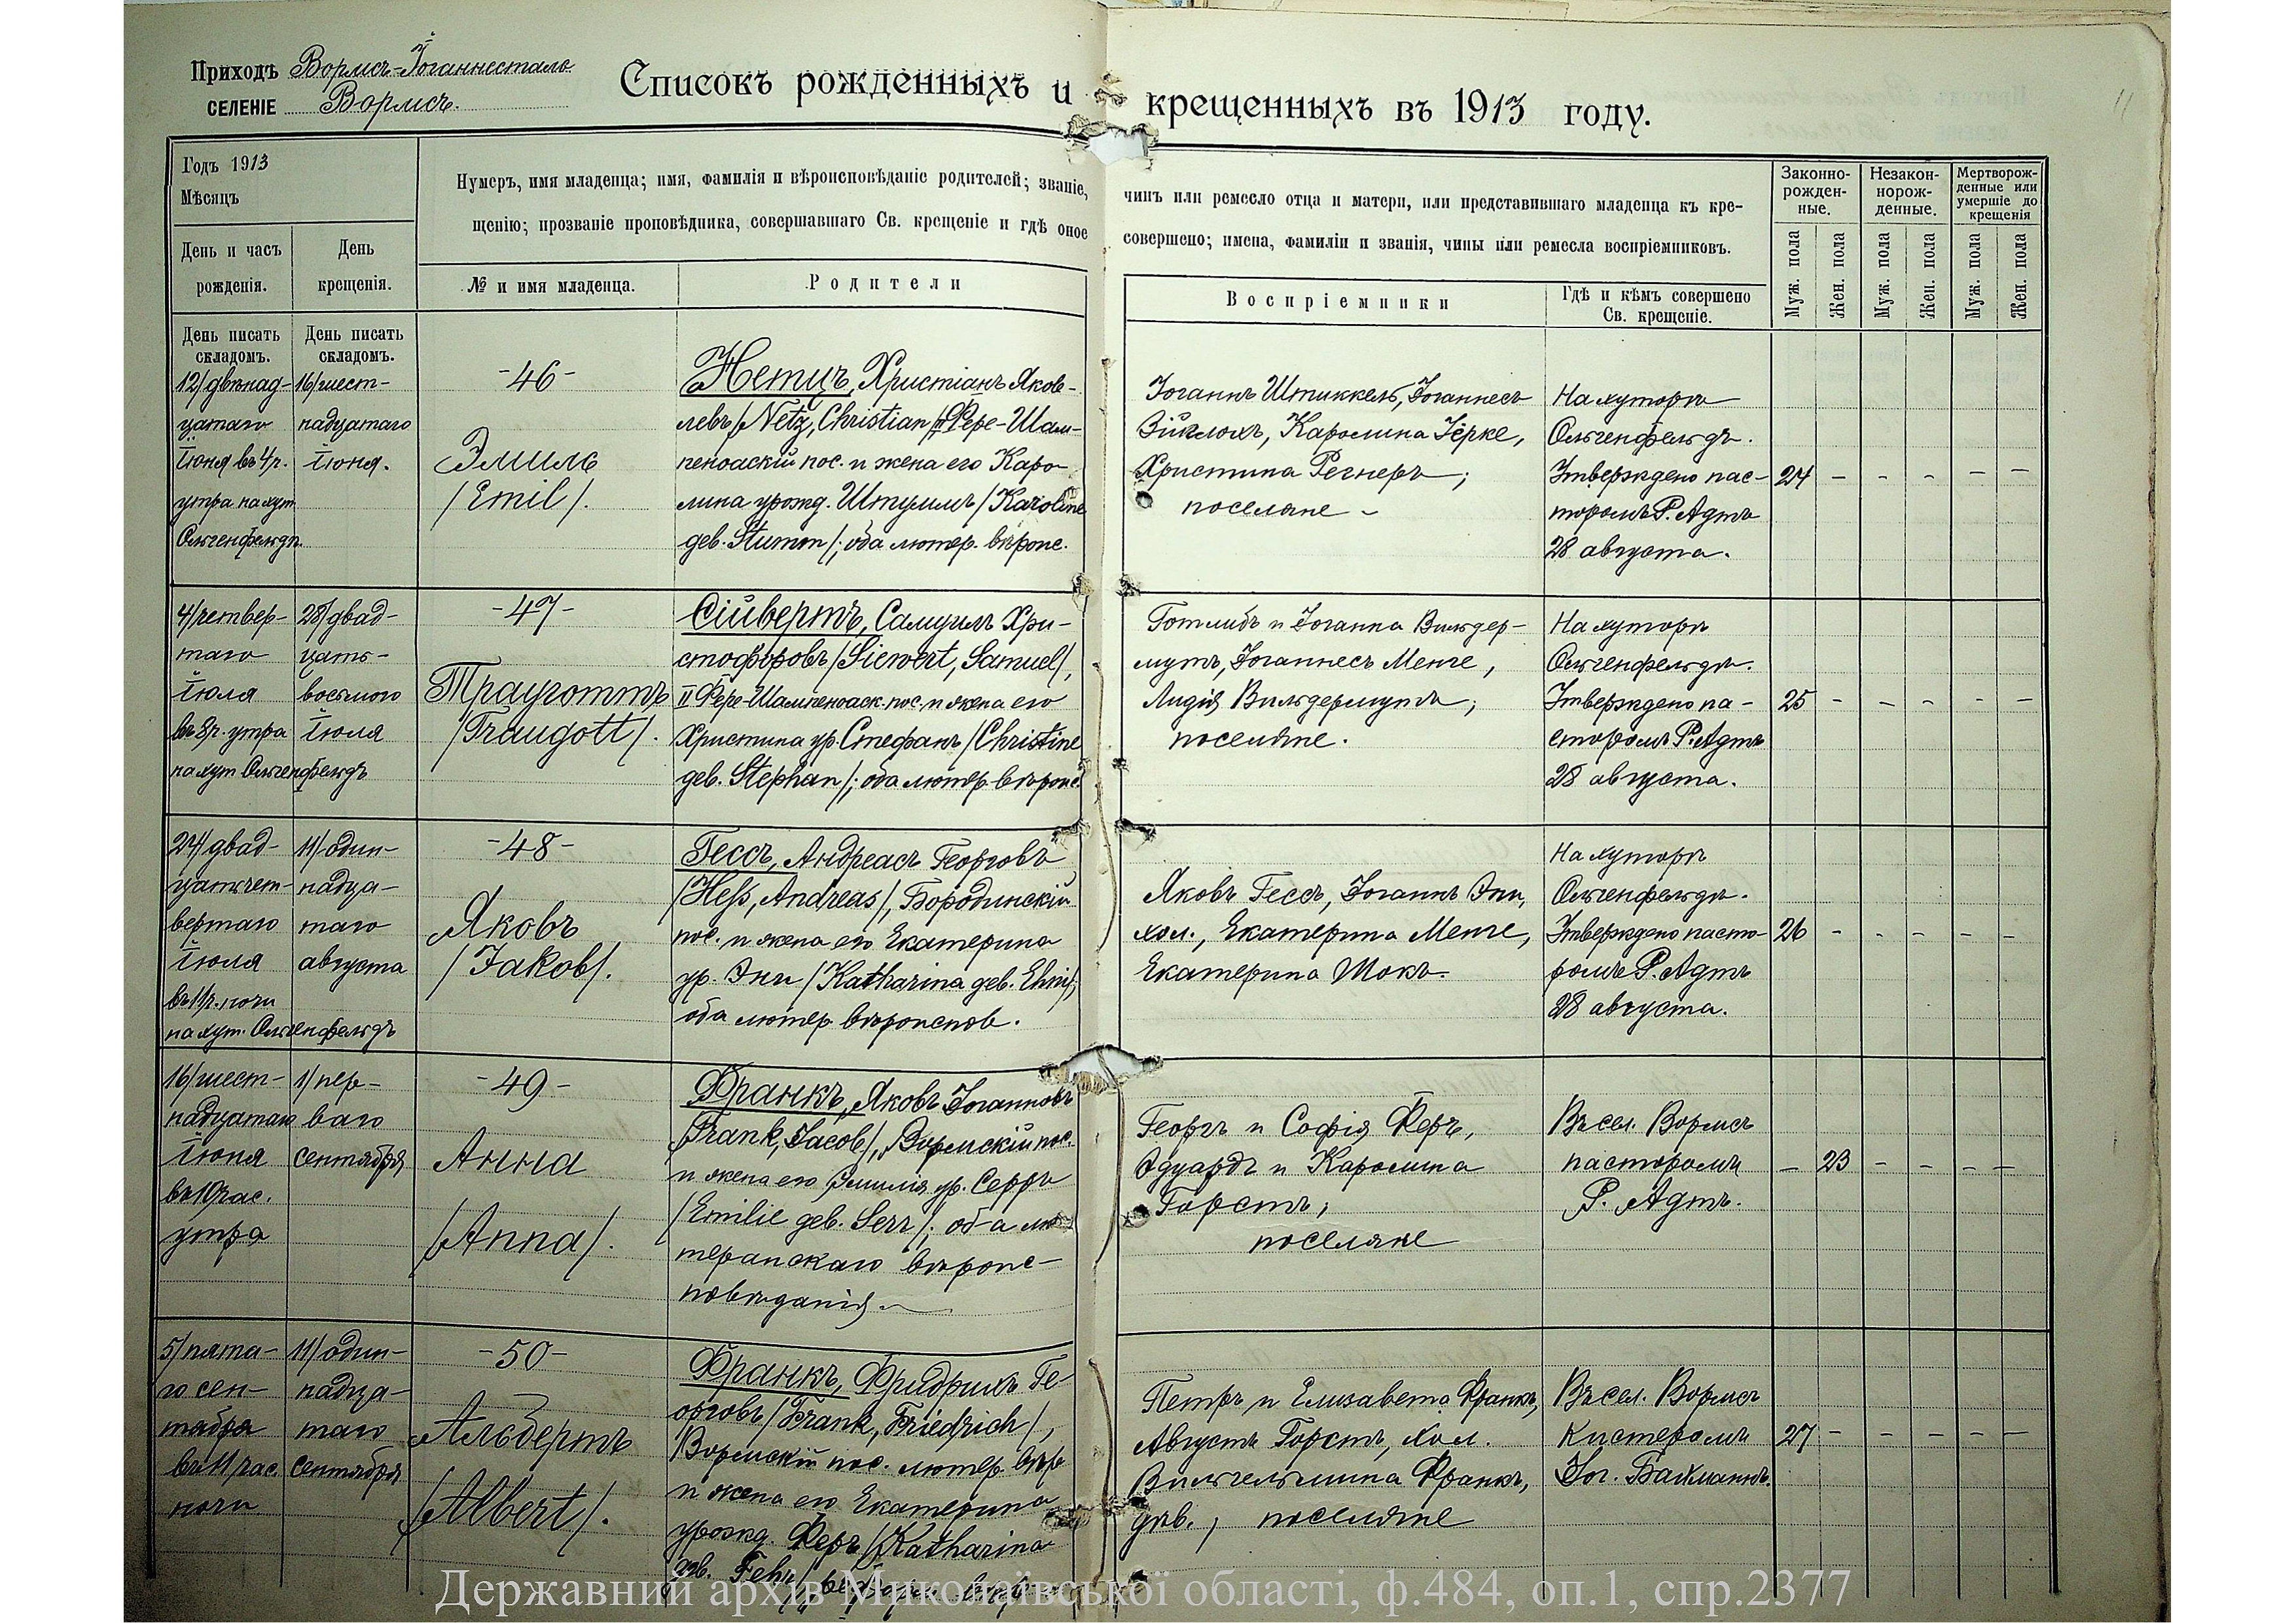 Приходъ Вормсъ-Іоганнесталь
селеніе Вормсъ.
Списокъ рожденныхъ и крещенныхъ въ 1913 году.
11
Годъ 1913
Мѣсяцъ
День и часъ рожденія.
День крещенія.
Нумеръ, имя младенца; имя, фамилія и вѣроисповѣданіе родителей; званіе, чинъ или ремесло отца и матери, или представившаго младенца къ кре-
щенію; прозваніе проповѣдника, совершавшаго Св. крещеніе и гдѣ оное совершено; имена, фамиліи и званія, чины или ремесла воспріемниковъ.
№ и имя младенца.
Родители
Воспріемники
Гдѣ и кѣмъ совершено
Св. крещеніе.
Законно-
рожден-
ные.
Незакон-
норож-
денные.
Мертворож-
денные или
умершіе до
крещенія
Муж. пола
Жен. пола
Муж. пола
Жен. пола
Муж. пола
Жен. пола
День писать
складомъ.
День писать
складомъ.
12/двѣнад-
цатаго
Іюня въ 4 ч.
утра на хут.
Ольгенфельдъ.
16/шест-
надцатаго
Іюня.
-46-
Эмиль
/Emil/.
Нетцъ, Христіанъ Яков-
левъ /Netz, Christian/ II Фере-Шам-
пеноаскій пос. и жена его Каро-
лина урожд. Штумпъ /Karoline
geb. Stumm/; оба лютер. вѣроис.
Іоганнъ Штиккель, Іоганнесъ
Каролина Іерке,
Христина Регнеръ;
поселяне -
На хуторѣ
Ольгенфельдъ.
Утверждено пас-
торомъ Р. Адтъ
28 августа.
24 - - - - -
4/четвер-
таго
Іюля
въ 8 ч. утра
на хут. Ольгенфельдъ
28/двад-
цать-
восьмого
Іюля
-47-
Трауготтъ
/Traugott/.
Сійвертъ, Самуилъ Хри-
стофоровъ /Siewert, Samuel/,
II Фере-Шампеноаск. пос. и жена его
Христина ур. Стефанъ /Christine
geb. Stephan/; оба лютер. вѣроис.
Готлибъ и Іоганна Вильдер-
мутъ, Іоганнесъ Менге,
Лидія Вильдермутъ;
поселяне.
На хуторѣ
Ольгенфельдъ.
Утверждено па-
сторомъ Р. Адтъ
28 августа.
25 - - - - -
24/двад-
цатьчет-
вертаго
Іюля
въ 11 ч. ночи
на хут. Ольгенфельдъ
11/один-
надца-
таго
августа
-48-
Яковъ
/Jakob/.
Гессъ, Андреасъ Георговъ
/Heß, Andreas/, Бородинскій
пос. и жена его Екатерина
ур. Эни /Katharina geb. Ehni/,
оба лютер. вѣроиспов.
Яковъ Гессъ, Іоганнъ Эни,
хол., Екатерина Менге,
Екатерина Шокъ.
На хуторѣ
Ольгенфельдъ.
Утверждено пасто-
ромъ Р. Адтъ
28 августа.
26 - - - - -
16/шест-
надцатаго
Іюня
въ 10 час.
утра
1/пер-
ваго
сентября
-49-
Анна
/Anna/.
Франкъ, Яковъ Іоганновъ
/Frank, Jacob/, Вормскій пос.
и жена его Эмилія ур. Серръ
/Emilie geb. Serr/; оба лю-
теранскаго вѣроис-
повѣданія
Георгъ и Софія Феръ,
Эдуардъ и Каролина
Горстъ,
поселяне
Въ сел. Вормсъ
пасторомъ
Р. Адтъ.
- 23 - - - -
5/пята-
го сен-
тября
въ 11 час.
ночи
11/один-
надца-
таго
сентября
-50-
Альбертъ
/Albert/.
Франкъ, Фридрихъ Ге-
орговъ /Frank, Friedrich/,
Вормскій пос. лютер. вѣр.
и жена его Екатерина
урожд. Феръ /Katharina
geb. Fehr/
Петръ и Елизавета Франкъ,
Августъ Горстъ, хол.
Вильгельмина Франкъ,
дѣв., поселяне
Въ сел. Вормсъ
Кистеромъ
Іог. Бахманнъ.
27 - - - - -
Державний архів Миколаївської області, ф.484, оп.1, спр.2377